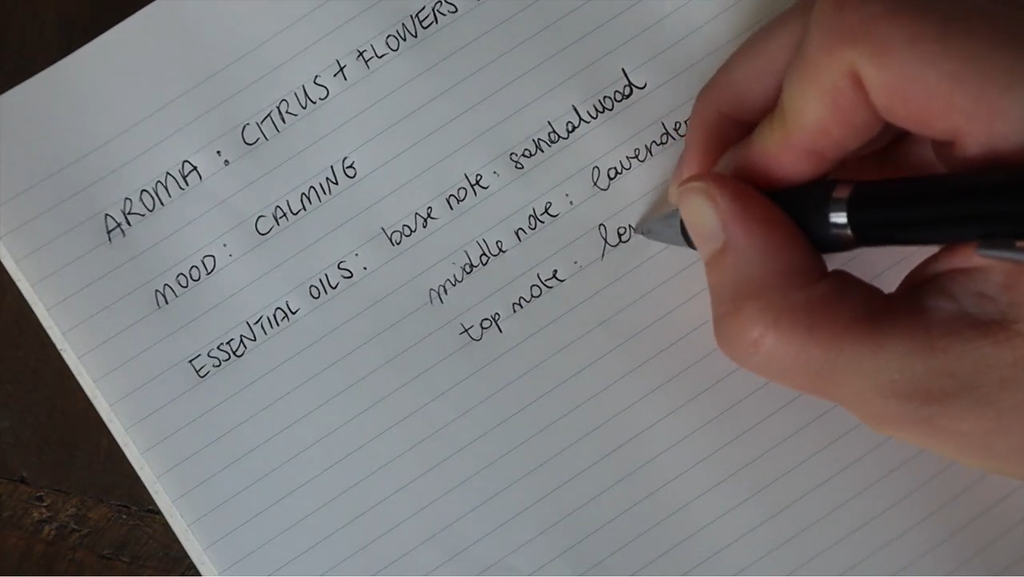 AROMA: CITRUS + FLOWERS
MOOD: CALMING
ESSENTIAL OILS: base note: sandalwood
middle note: lavender
top note: